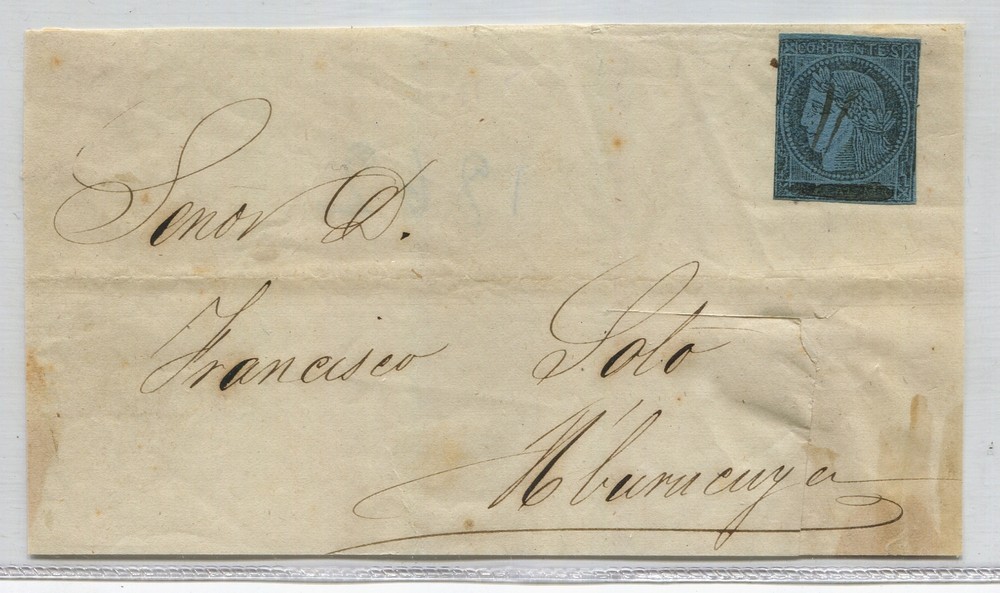 CORRIENTES
Señor D.
Francisco Soto
M'burucuya